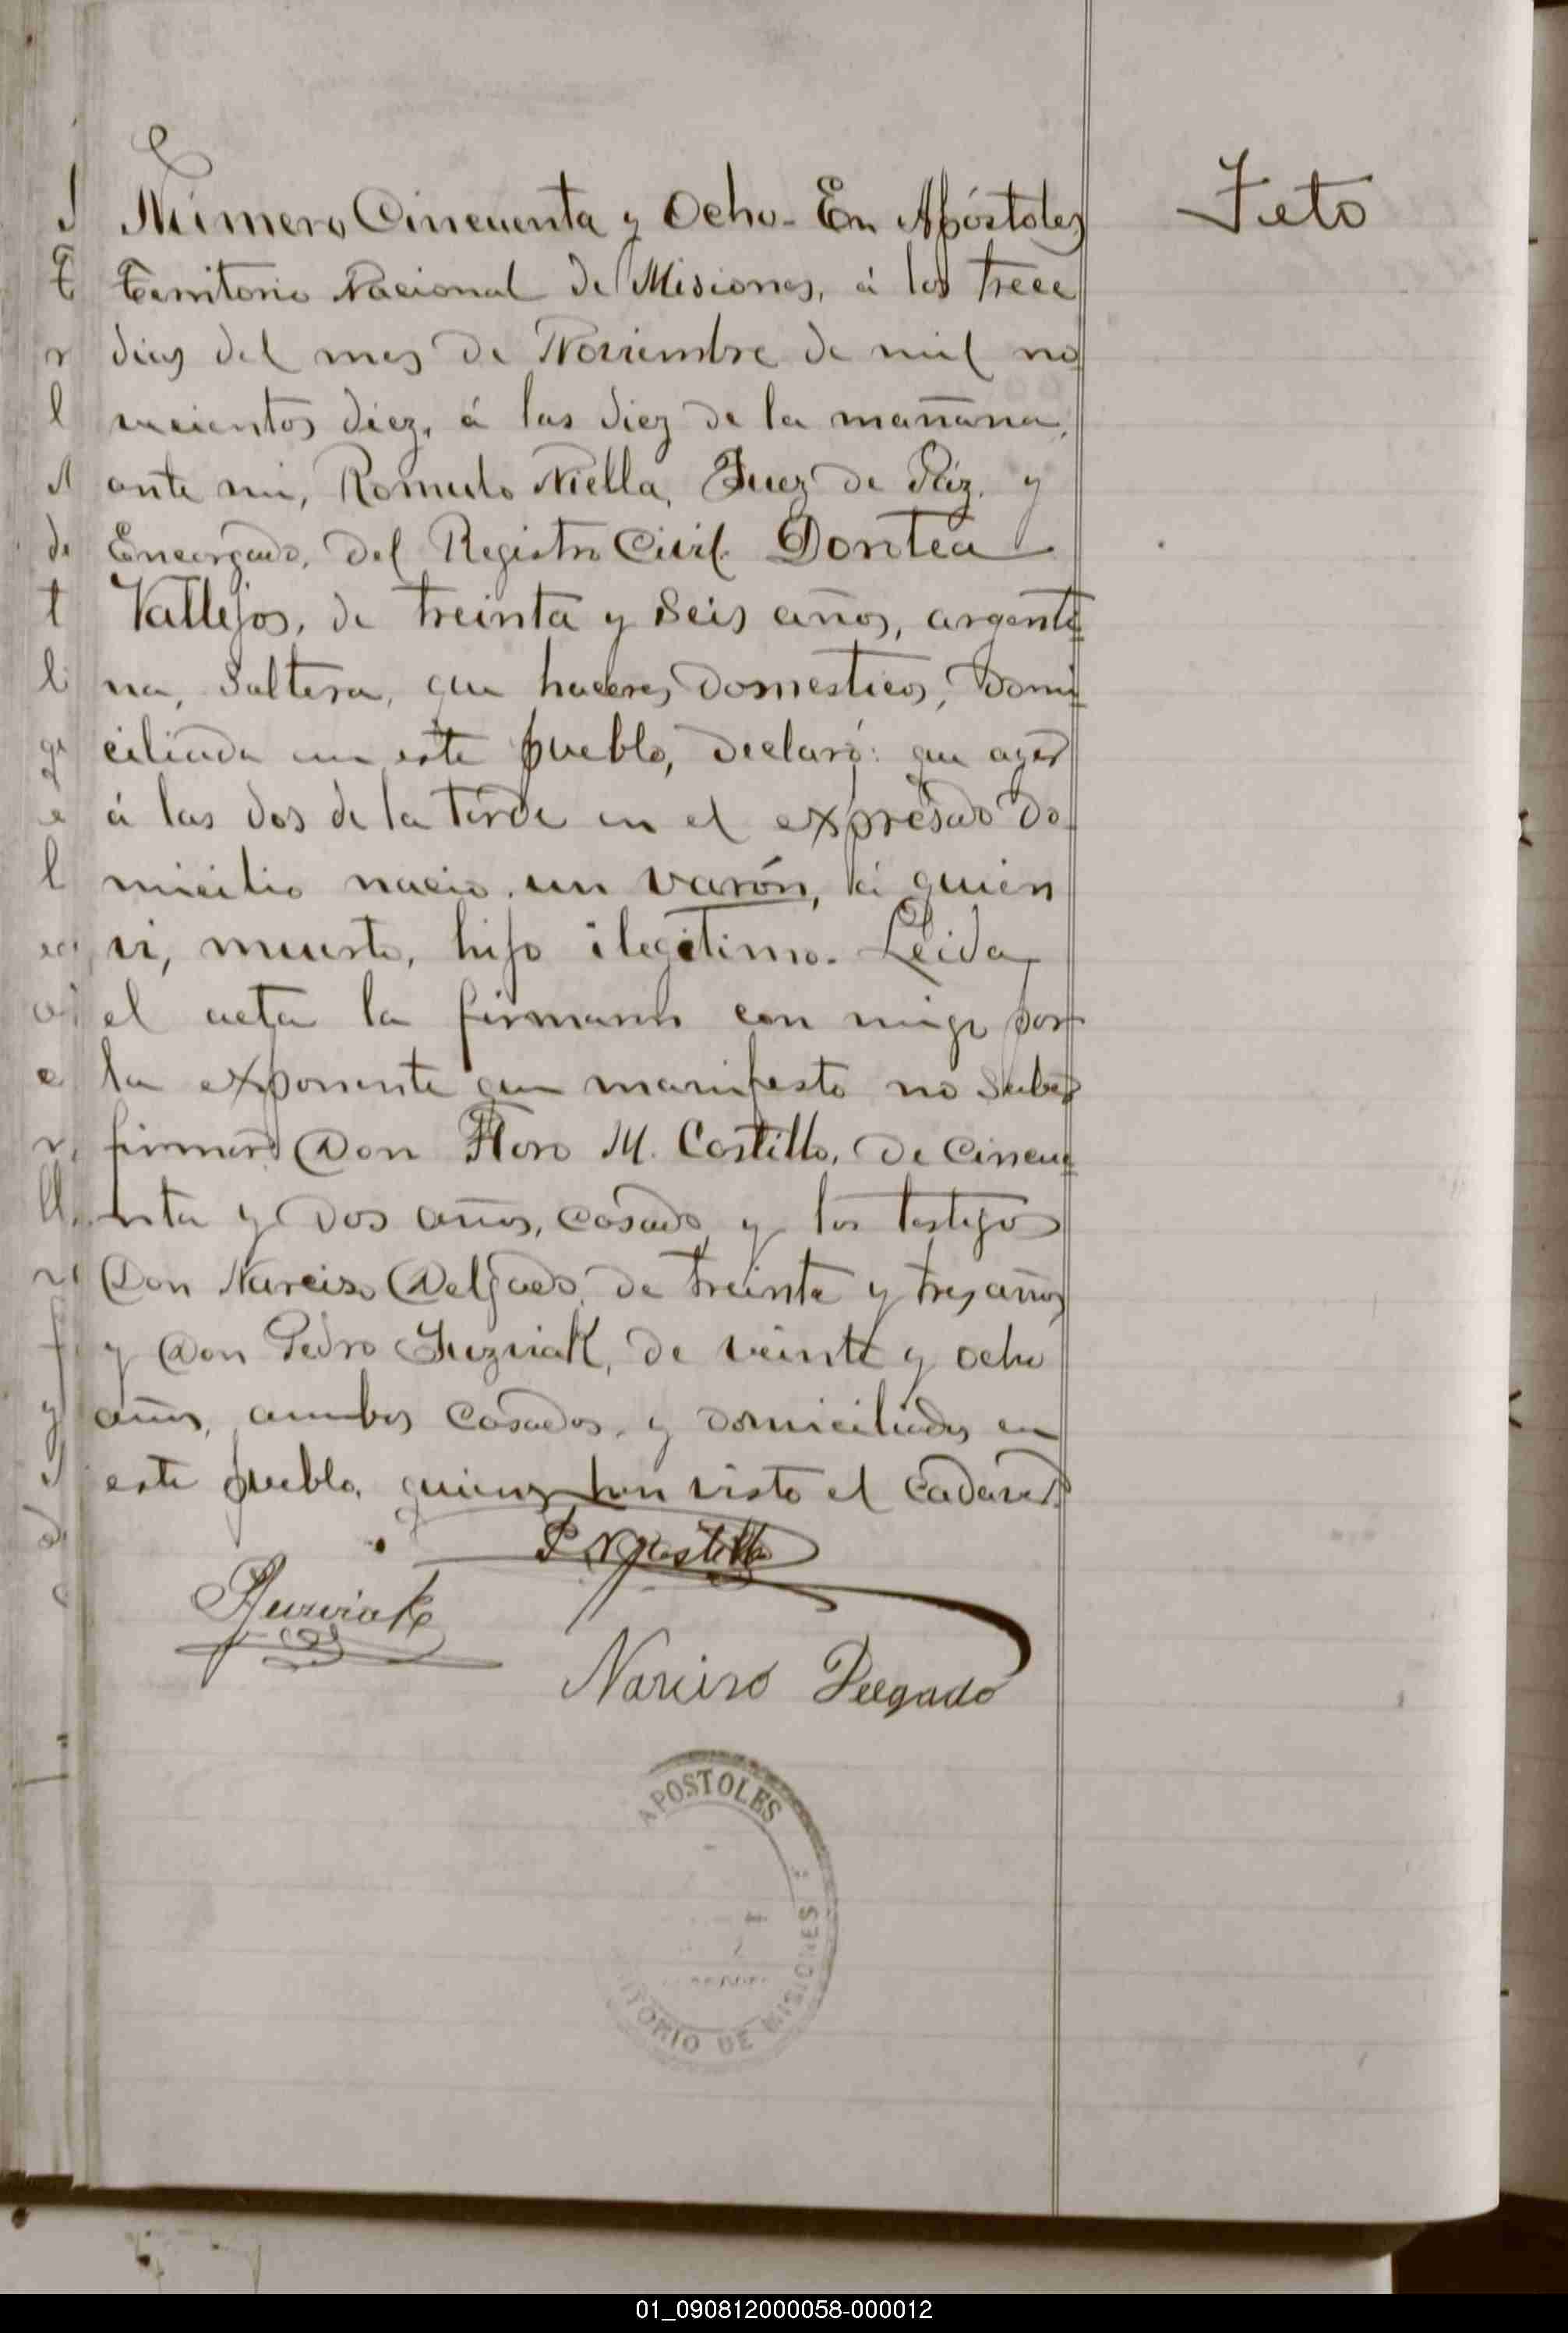 Feto
Número Cincuenta y Ocho - En Apóstoles
Territorio Nacional de Misiones, á los trece
dias del mes de Noviembre de mil no
vecientos diez, á las diez de la mañana,
ante mi, Romulo Niella, Juez de Páz, y
Encargado, del Registro Civil. Dorotea
Vallejos, de treinta y seis años, argenti=
na, soltera, que haceres domesticos, domi=
ciliada en este pueblo, declaró: que ayer
á las dos de la tarde en el expresado do-
micilio nacio un varón, á quien
vi, muerto, hijo ilegitimo. Leida
el acta la firmaron con migo por
la exponente que manifesto no saber
firmar Don Floro M. Costillo, de cincue=
nta y dos años, casado, y los testigos
Don Narciso Delgado, de treinta y tres años
y Don Pedro Juzviak, de veinte y ocho
años, ambos casados, y domiciliados en
este pueblo, quienes han visto el cadaver.
Narciso Delgado
APOSTOLES
ITORIO DE MISIONES
01_090812000058-000012